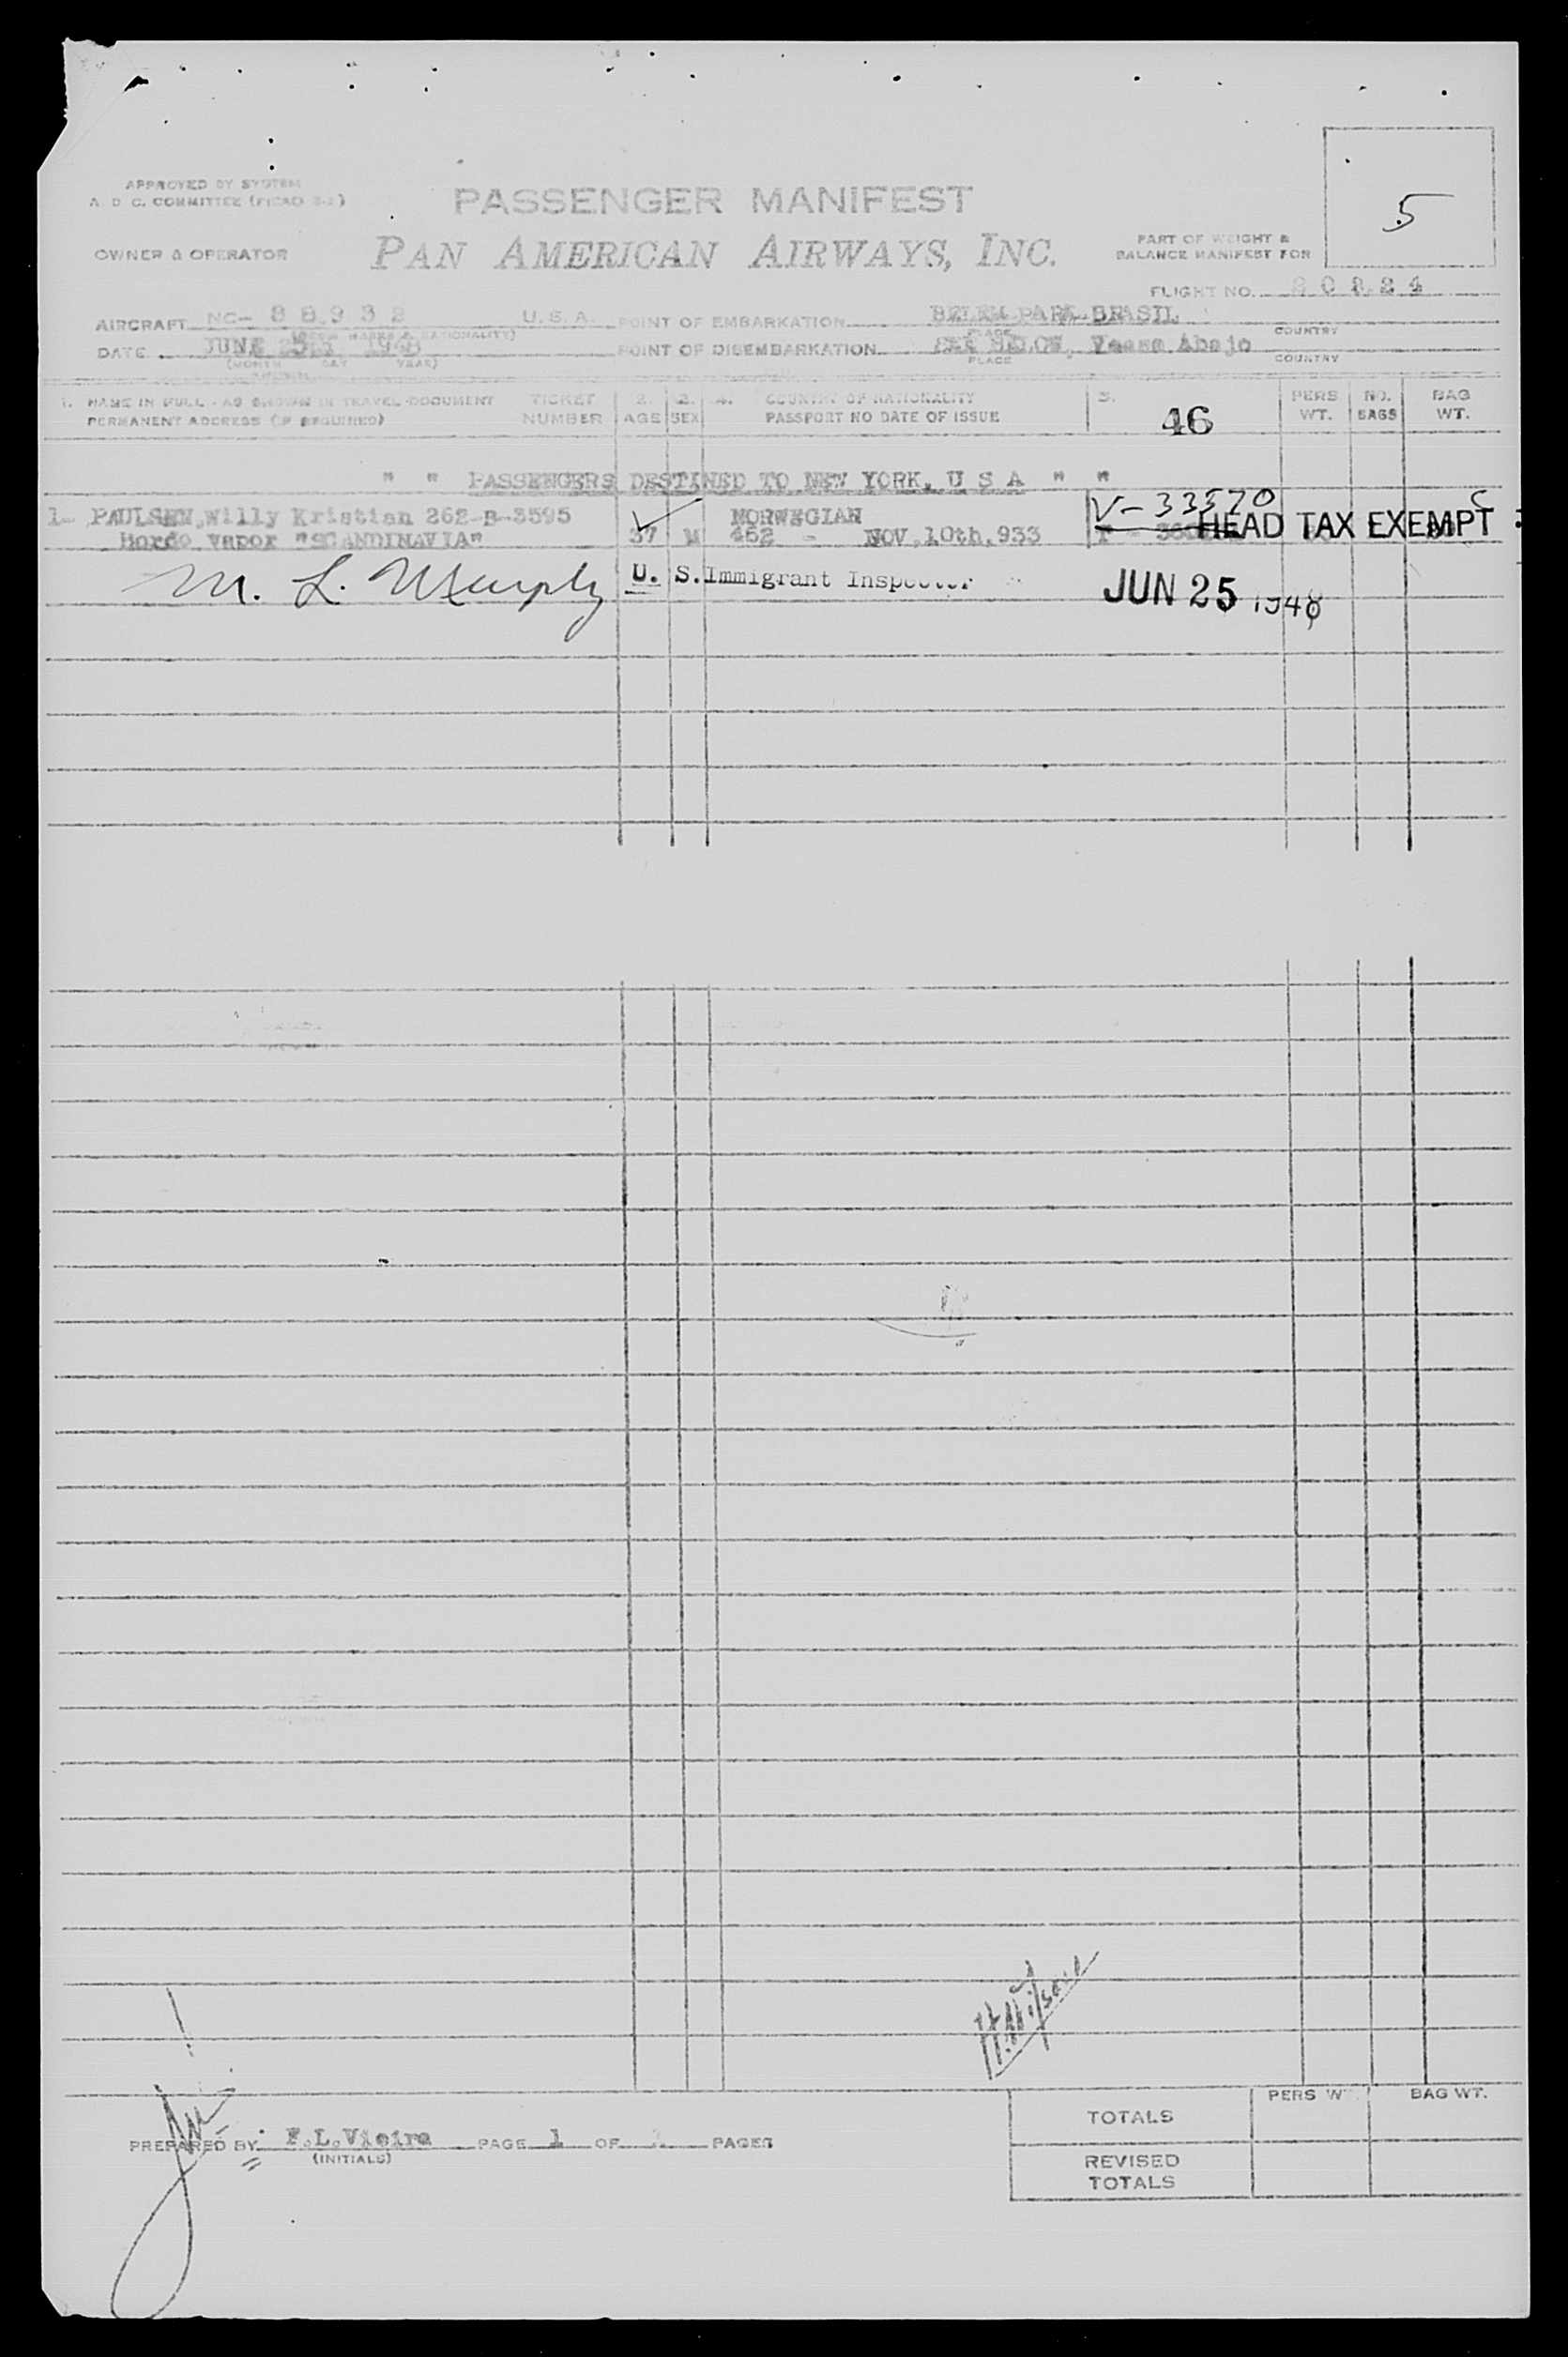 5
APPROVED BY SYSTEM
A. D. C. COMMITTEE
PASSENGER MANIFEST
OWNER & OPERATOR
PAN AMERICAN AIRWAYS, INC.
PART OF WEIGHT &
BALANCE MANIFEST FOR
FLIGHT NO.
AIRCRAFT NC- 88932 U. S. A. POINT OF EMBARKATION BELEM PARA BRASIL
PLACE COUNTRY
DATE JUNE POINT OF DISEMBARKATION SEE BELOW, Vease Abajo
(MONTH DAY YEAR) PLACE COUNTRY
1. NAME IN FULL - AS SHOWN IN TRAVEL DOCUMENT TICKET 2. 3. 4. COUNTRY OF NATIONALITY 5. PERS NO. BAG
PERMANENT ADDRESS (IF REQUIRED) NUMBER AGE SEX PASSPORT NO DATE OF ISSUE 46 WT. BAGS WT.
" " PASSENGERS DESTINED TO NEW YORK, U S A " "
1- PAULSEN, Willy Kristian 262-B-3595 NORWEGIAN V-33570 C
Bordo vapor "SCANDINAVIA" 37 M 462 - NOV. 10th, 933 HEAD TAX EXEMPT :
M. L. Murphy U. S. Immigrant Inspector JUN 25 1948
PREPARED BY: F.L.Vieira PAGE 1 OF PAGES
(INITIALS)
PERS WT BAG WT.
TOTALS
REVISED
TOTALS